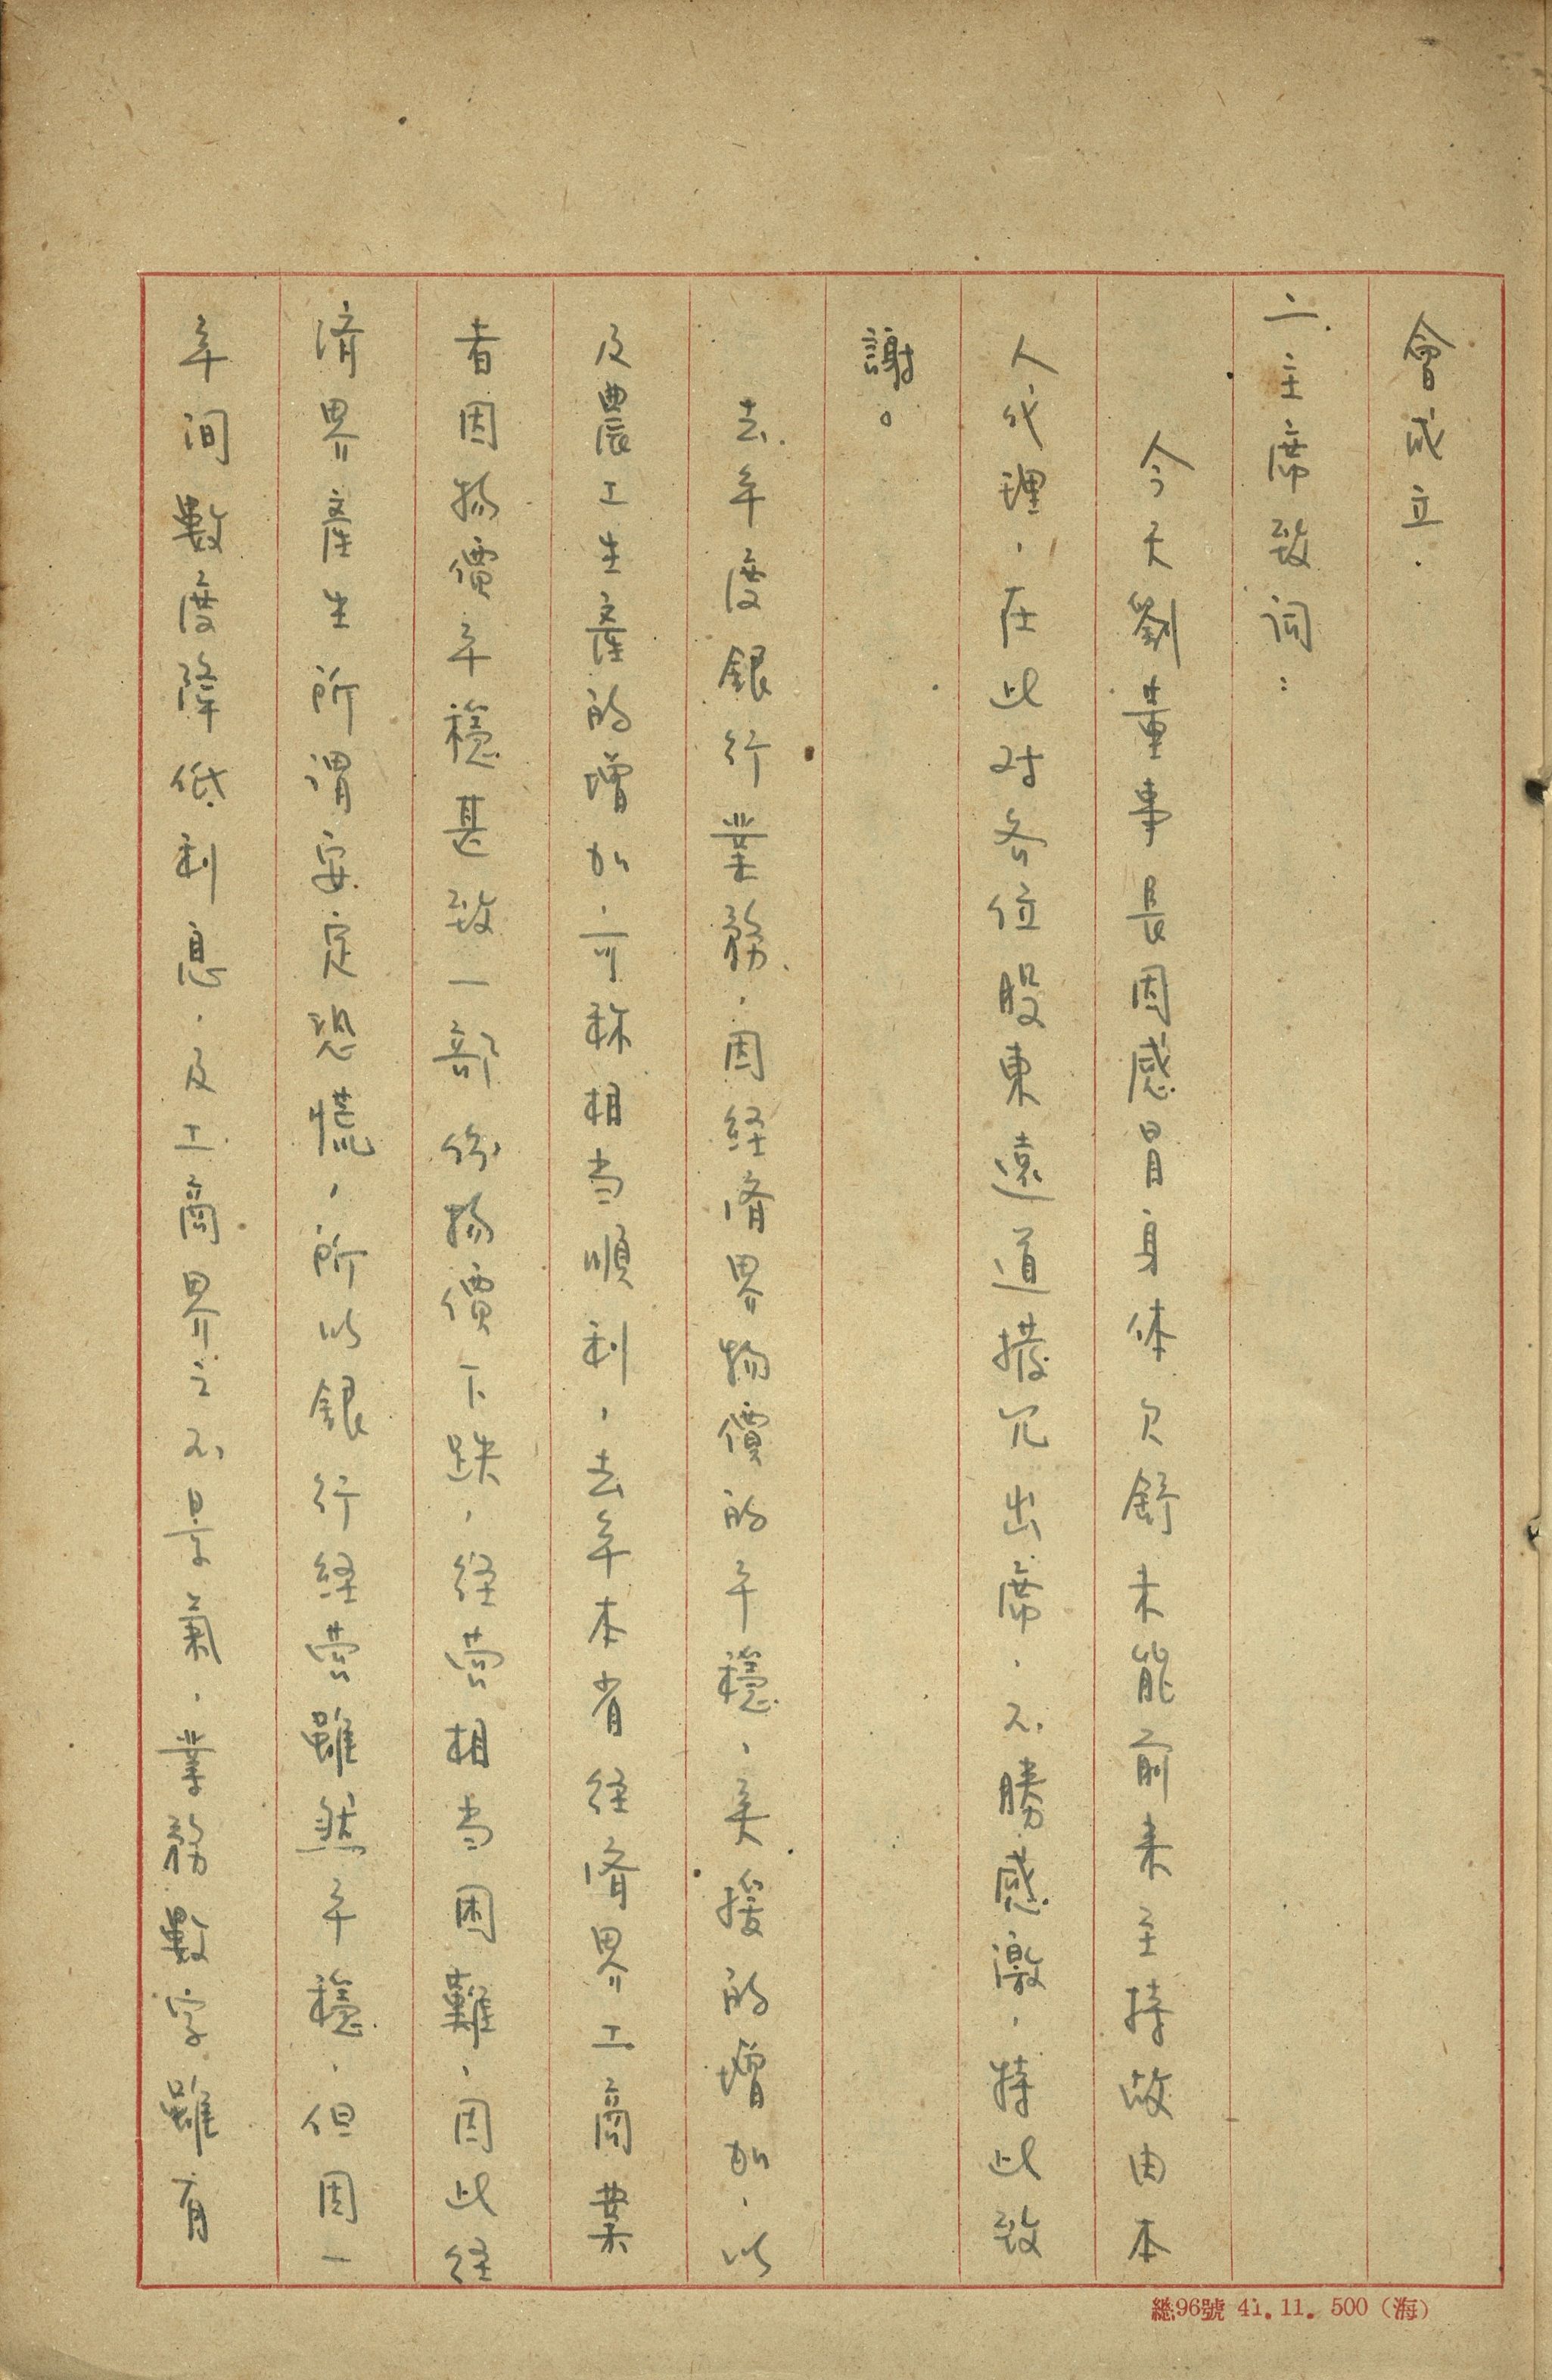 會成立.
二.主席致詞：
今天劉董事長因感冒身体欠舒未能前来主持故由本
人代理，在此对各位股東遠道撥冗出席，不勝感激，特此致
謝。
去年度銀行業務，因経済界物價的平穩，美援的增加，以
及農工生產的增加，可称相当順利，去年本省経済界工商業
者因物價平穩甚致一部份物價下跌，経营相当困難，因此経
済界產生所謂安定恐慌，所以銀行経营雖然平穩，但因一
年间數度降低利息，及工商界之不景氣，業務數字雖有
總96號 41. 11. 500（海）